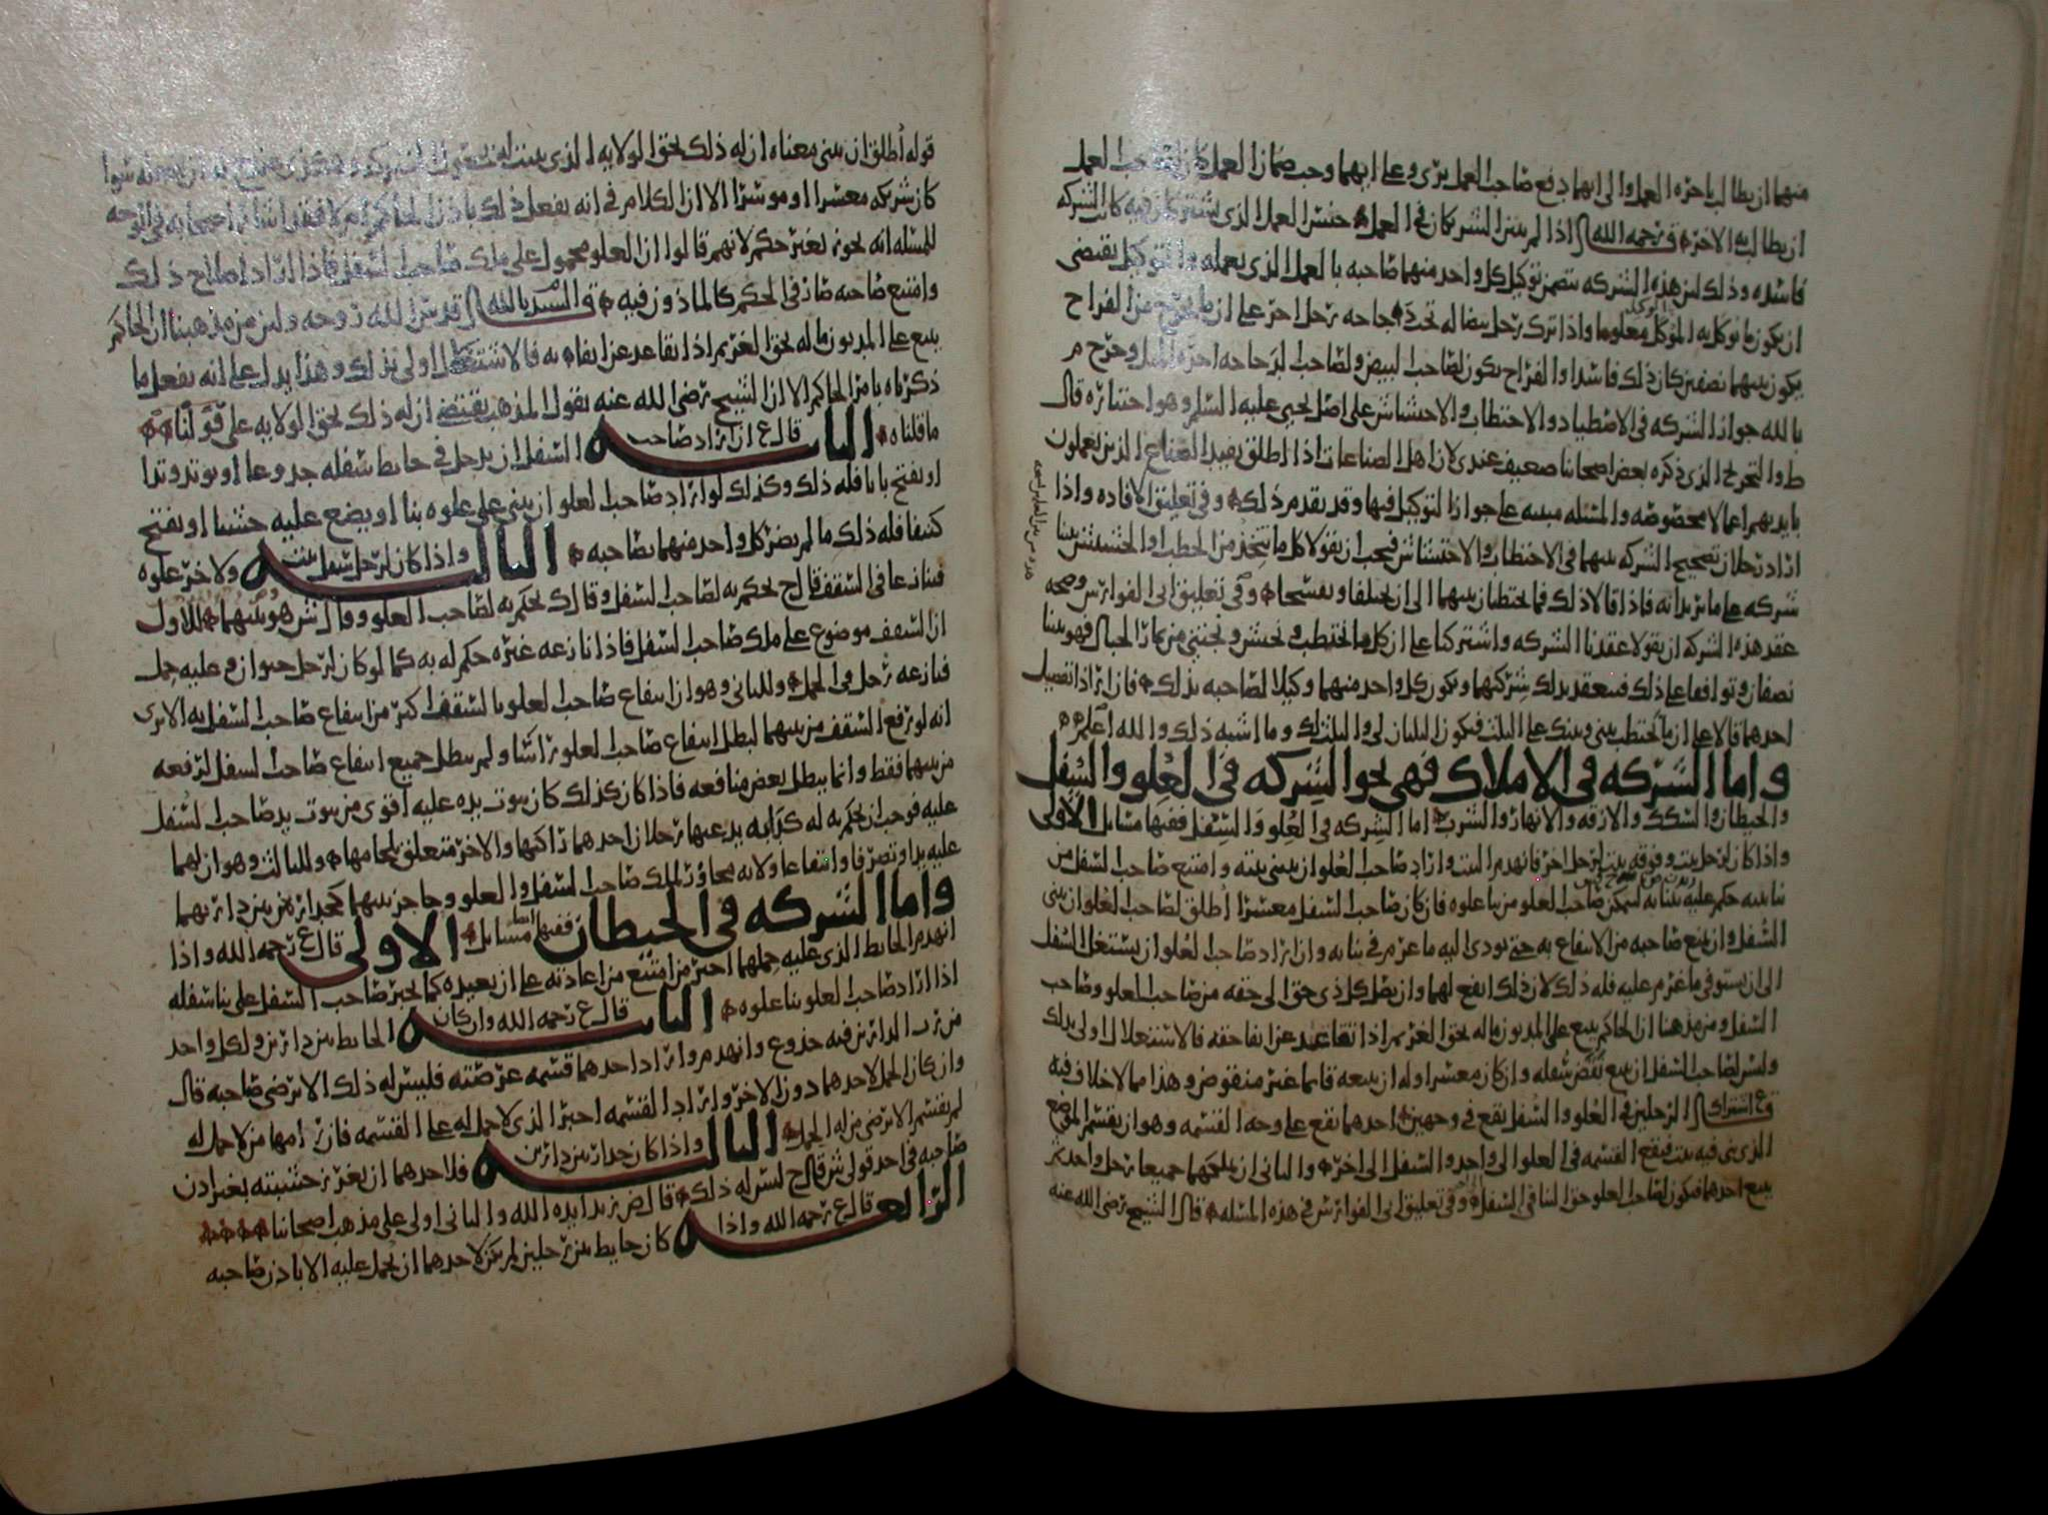 منهما ان يطالب باجره العمل والى ايهما دفع صاحب العمل برى وعلى ايهما وجب ضمان العمل كان لصاحب العمل
ان يطالب به الاخر فـ رحمه الله اذا لم يبين الشريكان في العمل جنس العمل الذي يشتركان فيه كانت الشركه
فاسده وذلك لان هذه الشركه تتضمن توكيل كل واحد منهما صاحبه بالعمل الذي يعمله والتوكيل يقتضي
ان يكون ما توكل به الموكل معلوما واذا ترك رجل بيضا له تحت دجاجه رجل اخر على ان ما يخرج من الفراخ
يكون بينهما نصفين كان ذلك فاسدا والفراخ يكون لصاحب البيض ولصاحب الدجاجه اجره المثل وخرج م
بالله جواز الشركه في الاصطياد والاحتطاب والاحتشاش على اصل يحيى عليه السلم وهو اختياره قال
ط والتخريج الذي ذكره بعض اصحابنا ضعيف عندي لان اهل الصناعات اذا اطلق يفيد الصناع الذين يعملون
بايديهم اعمالا مخصوصه والمسئله مبنيه على جواز التوكيل فيها وقد تقدم ذلك وفي تعليق الافاده واذا
اراد رجلان تصحيح الشركه بينهما في الاحتطاب والاحتشاش فيجب ان يقولا كل ما يتخذ من الحطب او الحشيش بيننا
شركه على ما نريد انه فاذا قالا ذلك فما يحتطبان بينهما الى ان يختلفا ويفسخا وفي تعليق ابي الفوارس وصحه
عقد هذه الشركه ان يقولا عقدنا الشركه واشتركنا على ان كل ما نحتطب ونحتش ونجتني من ثمار الجبال فهو بيننا
نصفان وتوافقا على ذلك فتنعقد بذلك شركتهما ويكون كل واحد منهما وكيلا لصاحبه بذلك فان ارادا تفضيل
احدهما قالا على ان ما نحتطب بيني وبينك على الثلث فيكون الثلثان لي والثلث لك وما اشبه ذلك والله اعلم
واما الشركه في الاملاك فهي نحو الشركه في العلو والسفل
والحيطان والسكك والازقه والانهار والشرب اما الشركه في العلو والسفل ففيها مسايل الاولى
واذا كان لرجل بيت وفوقه بيت لرجل اخر فانهدم البيت واراد صاحب العلو ان يبني بيته وامتنع صاحب السفل من
بنا بيته حكم عليه ببنايه ليتمكن صاحب العلو من بنا علوه فان كان صاحب السفل معسرا اطلق لصاحب العلو ان يبني
السفل وان يمنع صاحبه من الانتفاع به حتى يودي اليه ما غرم في بنايه وان اراد صاحب العلو ان يستغل السفل
الى ان يستوفي ما غرم عليه فله ذلك لان ذلك انفع لهما وان يصل كل ذي حق الى حقه من صاحب العلو وصاحب
السفل ومن مذهبنا ان الحاكم يبيع على المديون ماله بحق الغريم اذا تقاعد عن ايفا حقه فالاستغلال اولى بذلك
وليس لصاحب السفل ان يبيع نقض سفله وان كان معسرا وله ان يبيعه قائما غير منقوض وهذا مما لا خلاف فيه
فـ ع اشتراك الرجلين في العلو والسفل يقع في وجهين احدهما يقع على وجه القسمه وهو ان يقتسم الموضع
الذي بني فيه بيت فيقع القسمه في العلو الى واحد والسفل الى اخر والثاني ان يملكهما جميعا رجل واحد ثم
يبيع احدهما فيكون لصاحب العلو حق البنا في السفل وفي تعليق ابي الفوارس في هذه المسئله قال الشيخ رضي الله عنه
قوله اطلق ان يبني معناه ان له ذلك بحق الولايه الذي
كان شريكه معسرا او موسرا الا ان الكلام في انه يفعل ذلك باذن الحاكم ام لا
للمسئله انه يجوز بغير حكم لانهم قالوا ان العلو محمول على ملك صاحب السفل فاذا اراد اصلاح ذلك
وامتنع صاحبه صار في الحكم كالماذون فيه قال السيد بالله قدس الله روحه وليس من مذهبنا ان الحاكم
يبيع على المديون ماله بحق الغريم اذا تقاعد عن ايفاه به فالاستغلال اولى بذلك وهذا يدل على انه يفعل ما
ذكرناه بامر الحاكم الا ان الشيخ رضي الله عنه يقول المذهب يقتضي ان له ذلك بحق الولايه على قولنا
ما قلناه الثانيه قال ع ان اراد صاحب السفل ان يدخل في حايط سفله جذوعا او يوتد وتدا
او يفتح بابا فله ذلك وكذلك لو اراد صاحب العلو ان يبني على علوه بنا او يضع عليه خشبا او يفتح
كنيفا فله ذلك ما لم يضر كل واحد منهما بصاحبه الثالثه واذا كان لرجل سفل بيت ولاخر علوه
فتنازعا في السقف قال ح يحكم به لصاحب السفل وقال ك يحكم به لصاحب العلو وقال ش هو بينهما للاول
ان السقف موضوع على ملك صاحب السفل فاذا نازعه غيره حكم له به كما لو كان لرجل حيوان وعليه حمل
فنازعه رجل في الحمل وللثاني وهو ان انتفاع صاحب العلو بالسقف اكثر من انتفاع صاحب السفل به الا ترى
انه لو رفع السقف من بينهما لبطل انتفاع صاحب العلو راسا ولم يبطل جميع انتفاع صاحب السفل لرفعه
من بينهما فقط وانما يبطل بعض منافعه فاذا كان كذلك كان ثبوت يده عليه اقوى من ثبوت يد صاحب السفل
عليه فوجب ان يحكم به له كدابه يدعيها رجلان احدهما راكبها والاخر متعلق بلجامها وللثالث وهو ان لهما
عليه يدا وتصرفا وانتفاعا ولانه مجاور لملك صاحب السفل والعلو وحاجز بينهما كجدار بين دارين دارتهما
واما الشركه في الحيطان ففيها ايضا مسايل الاولى قال ع رحمه الله واذا
انهدم الحايط الذي عليه حملهما اجبر من امتنع من اعادته على ان يعيده كما يجبر صاحب السفل على بنا سفله
اذا اراد صاحب العلو بنا علوه الثانيه قال ع رحمه الله وان كان الحايط بين دارين ولكل واحد
من رب الدارين فيه جذوع وانهدم واراد احدهما قسمه عرصته فليس له ذلك الا برضى صاحبه قال
وان كان الحمل لاحدهما دون الاخر واراد القسمه اجبر الذي لا حمل له على القسمه فان رامها من لا حمل له
لم يقتسم الا برضى من له الحمل الثالثه واذا كان جدار بين دارين فلاحدهما ان يغرز خشبته بغير اذن
صاحبه في احد قولي ش قال ح ليس له ذلك قال ض زيد ايده الله والثاني اولى على مذهب اصحابنا
الرابعه قال ع رحمه الله واذا كان حايط بين رجلين لم يكن لاحدهما ان يحمل عليه الا باذن صاحبه